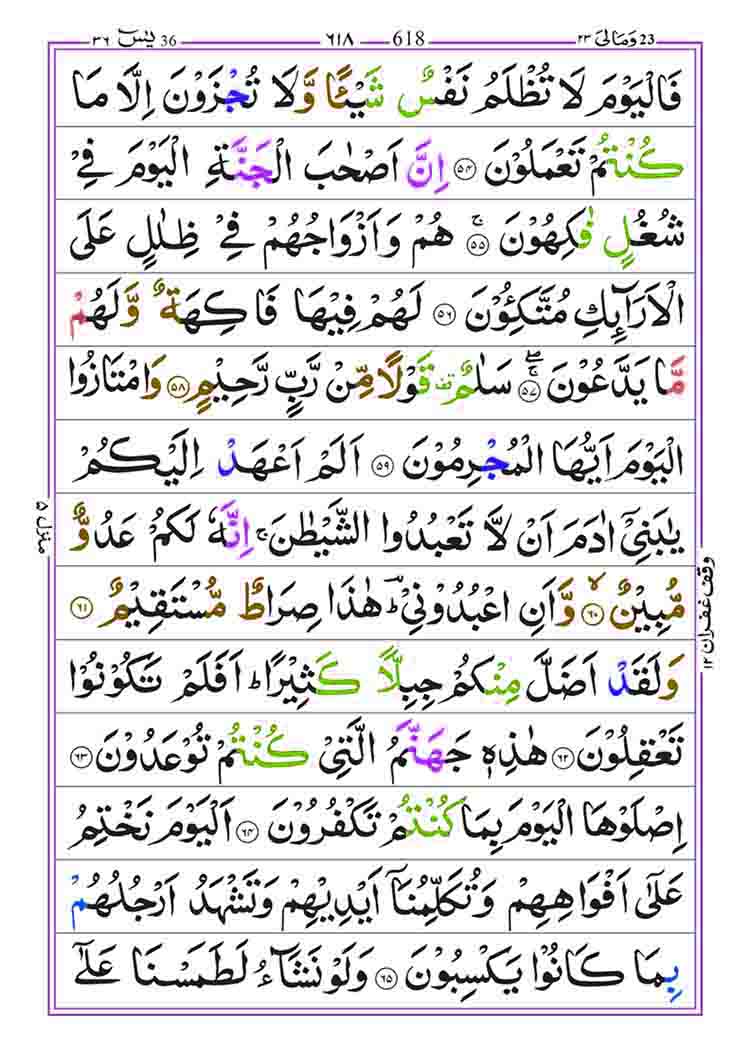 وَمَالِیَ ٢٣ 23 618 ٦١٨ یٰسٓ ٣٦ 36
فَالْيَوْمَ لَا تُظْلَمُ نَفْسٌ شَيْئًا وَّلَا تُجْزَوْنَ اِلَّا مَا
كُنْتُمْ تَعْمَلُوْنَ ﴿٥٤﴾ اِنَّ اَصْحٰبَ الْجَنَّةِ الْيَوْمَ فِيْ
شُغُلٍ فٰكِهُوْنَ ۚ ﴿٥٥﴾ هُمْ وَاَزْوَاجُهُمْ فِيْ ظِلٰلٍ عَلَى
الْاَرَآئِكِ مُتَّكِئُوْنَ ﴿٥٦﴾ لَهُمْ فِيْهَا فَاكِهَةٌ وَّلَهُمْ
مَّا يَدَّعُوْنَ ۖۚ ﴿٥٧﴾ سَلٰمٌ ۟ قَوْلًا مِّنْ رَّبٍّ رَّحِيْمٍ ﴿٥٨﴾ وَامْتَازُوا
الْيَوْمَ اَيُّهَا الْمُجْرِمُوْنَ ﴿٥٩﴾ اَلَمْ اَعْهَدْ اِلَيْكُمْ
يٰبَنِيْٓ اٰدَمَ اَنْ لَّا تَعْبُدُوا الشَّيْطٰنَ ۚ اِنَّهٗ لَكُمْ عَدُوٌّ
مُّبِيْنٌ ۙ ﴿٦٠﴾ وَّاَنِ اعْبُدُوْنِيْ ؕ هٰذَا صِرَاطٌ مُّسْتَقِيْمٌ ﴿٦١﴾
وَلَقَدْ اَضَلَّ مِنْكُمْ جِبِلًّا كَثِيْرًا ؕ اَفَلَمْ تَكُوْنُوْا
تَعْقِلُوْنَ ﴿٦٢﴾ هٰذِهٖ جَهَنَّمُ الَّتِيْ كُنْتُمْ تُوْعَدُوْنَ ﴿٦٣﴾
اِصْلَوْهَا الْيَوْمَ بِمَا كُنْتُمْ تَكْفُرُوْنَ ﴿٦٤﴾ اَلْيَوْمَ نَخْتِمُ
عَلٰٓى اَفْوَاهِهِمْ وَتُكَلِّمُنَآ اَيْدِيْهِمْ وَتَشْهَدُ اَرْجُلُهُمْ
بِمَا كَانُوْا يَكْسِبُوْنَ ﴿٦٥﴾ وَلَوْ نَشَآءُ لَطَمَسْنَا عَلٰٓى
منزل ٥
وقف غفران ١٢